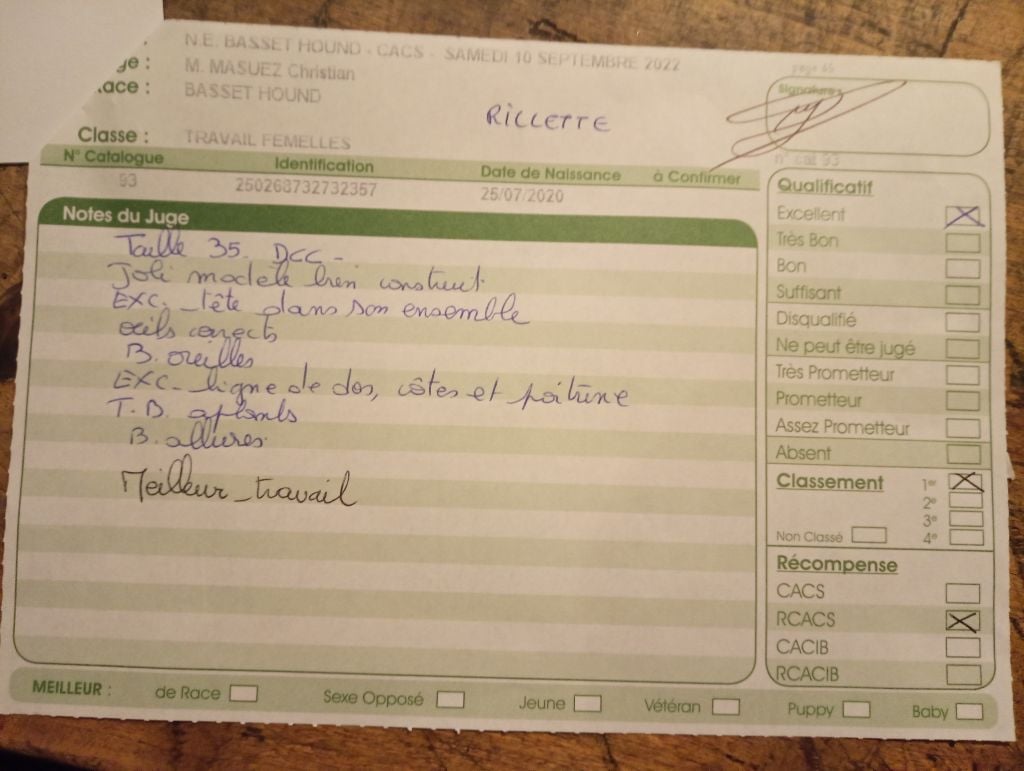 N.E. BASSET HOUND - CACS - SAMEDI 10 SEPTEMBRE 2022 page 65
ge : M. MASUEZ Christian
ace : BASSET HOUND
RILLETTE
Signature :
Classe : TRAVAIL FEMELLES
n° cat 93
N° Catalogue Identification Date de Naissance à Confirmer
93 250268732732357 25/07/2020
Notes du Juge
Taille 35. DCC -
Joli modèle bien construit.
EXC. tête dans son ensemble
œils corrects
B. oreilles
EXC - ligne de dos, côtes et poitrine
T.B. aplombs
B. allures.
Meilleur travail
Qualificatif
Excellent
Très Bon
Bon
Suffisant
Disqualifié
Ne peut être jugé
Très Prometteur
Prometteur
Assez Prometteur
Absent
Classement 1er
2e
3e
Non Classé 4e
Récompense
CACS
RCACS
CACIB
RCACIB
MEILLEUR : de Race Sexe Opposé Jeune Vétéran Puppy Baby